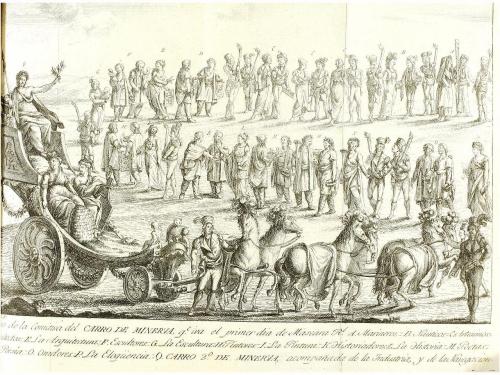 de la Comitiva del CARRO DE MINERVA, q.e iva el primer dia de Mascara Rl. A. Marineros. B. Nautica. C.
E. La Arquitectura. F. Escultores. G. La Escultura. H. Pintores. I. La Pintura. K. Historiadores. L. La Historia. M. Poetas.
Poesia. O. Oradores. P. La Eloqüencia. Q. CARRO 2.º DE MINERVA, acompañada de la Industria, y de la Navegacion